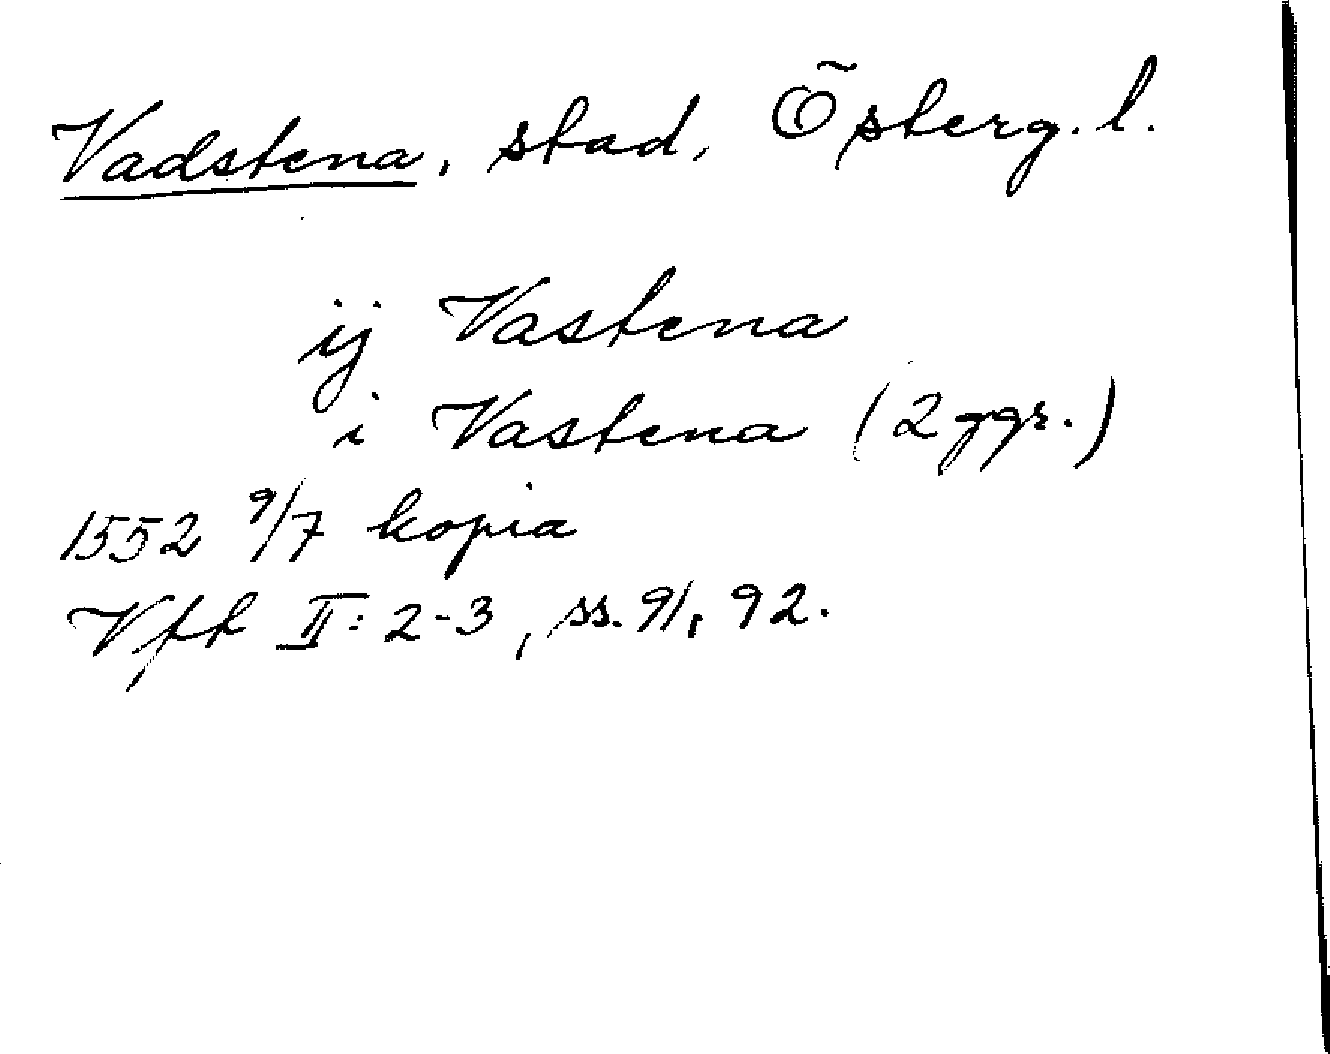 Vadstena, stad, Österg. l.
ij Vastena
i Vastena (2 ggr.)
1552 9/7 kopia
Vff II: 2-3, ss. 91, 92.